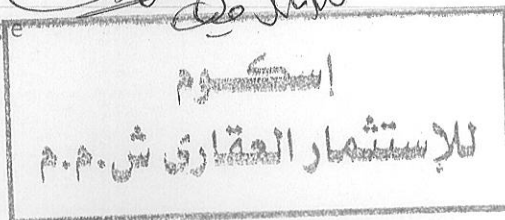 إسكوم
للإستثمار العقارى ش.م.م